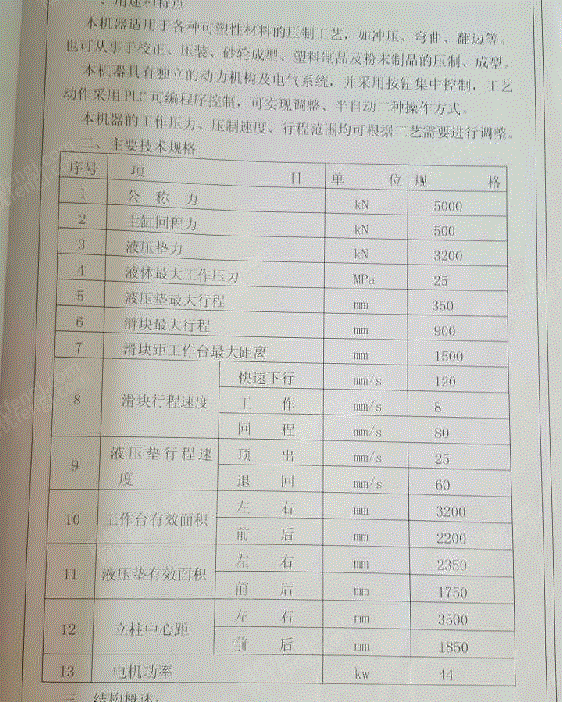 一、用途和特点
本机器适用于各种可塑性材料的压制工艺，如冲压、弯曲、翻边等。
也可从事于校正、压装、砂轮成型、塑料制品及粉末制品的压制、成型。
本机器具有独立的动力机构及电气系统，并采用按钮集中控制，工艺
动作采用PLC可编程序控制，可实现调整、半自动二种操作方式。
本机器的工作压力、压制速度、行程范围均可根据工艺需要进行调整。
二、主要技术规格
序号 项 目 单 位 规 格
1 公 称 力 kN 5000
2 主缸回程力 kN 500
3 液压垫力 kN 3200
4 液体最大工作压力 MPa 25
5 液压垫最大行程 mm 350
6 滑块最大行程 mm 900
7 滑块距工作台最大距离 mm 1500
8 滑块行程速度 快速下行 mm/s 120
工 作 mm/s 8
回 程 mm/s 80
9 液压垫行程速度 顶 出 mm/s 25
退 回 mm/s 60
10 工作台有效面积 左 右 mm 3200
前 后 mm 2200
11 液压垫有效面积 左 右 mm 2350
前 后 mm 1750
12 立柱中心距 左 右 mm 3500
前 后 mm 1850
13 电机功率 kw 44
三、结构概述：